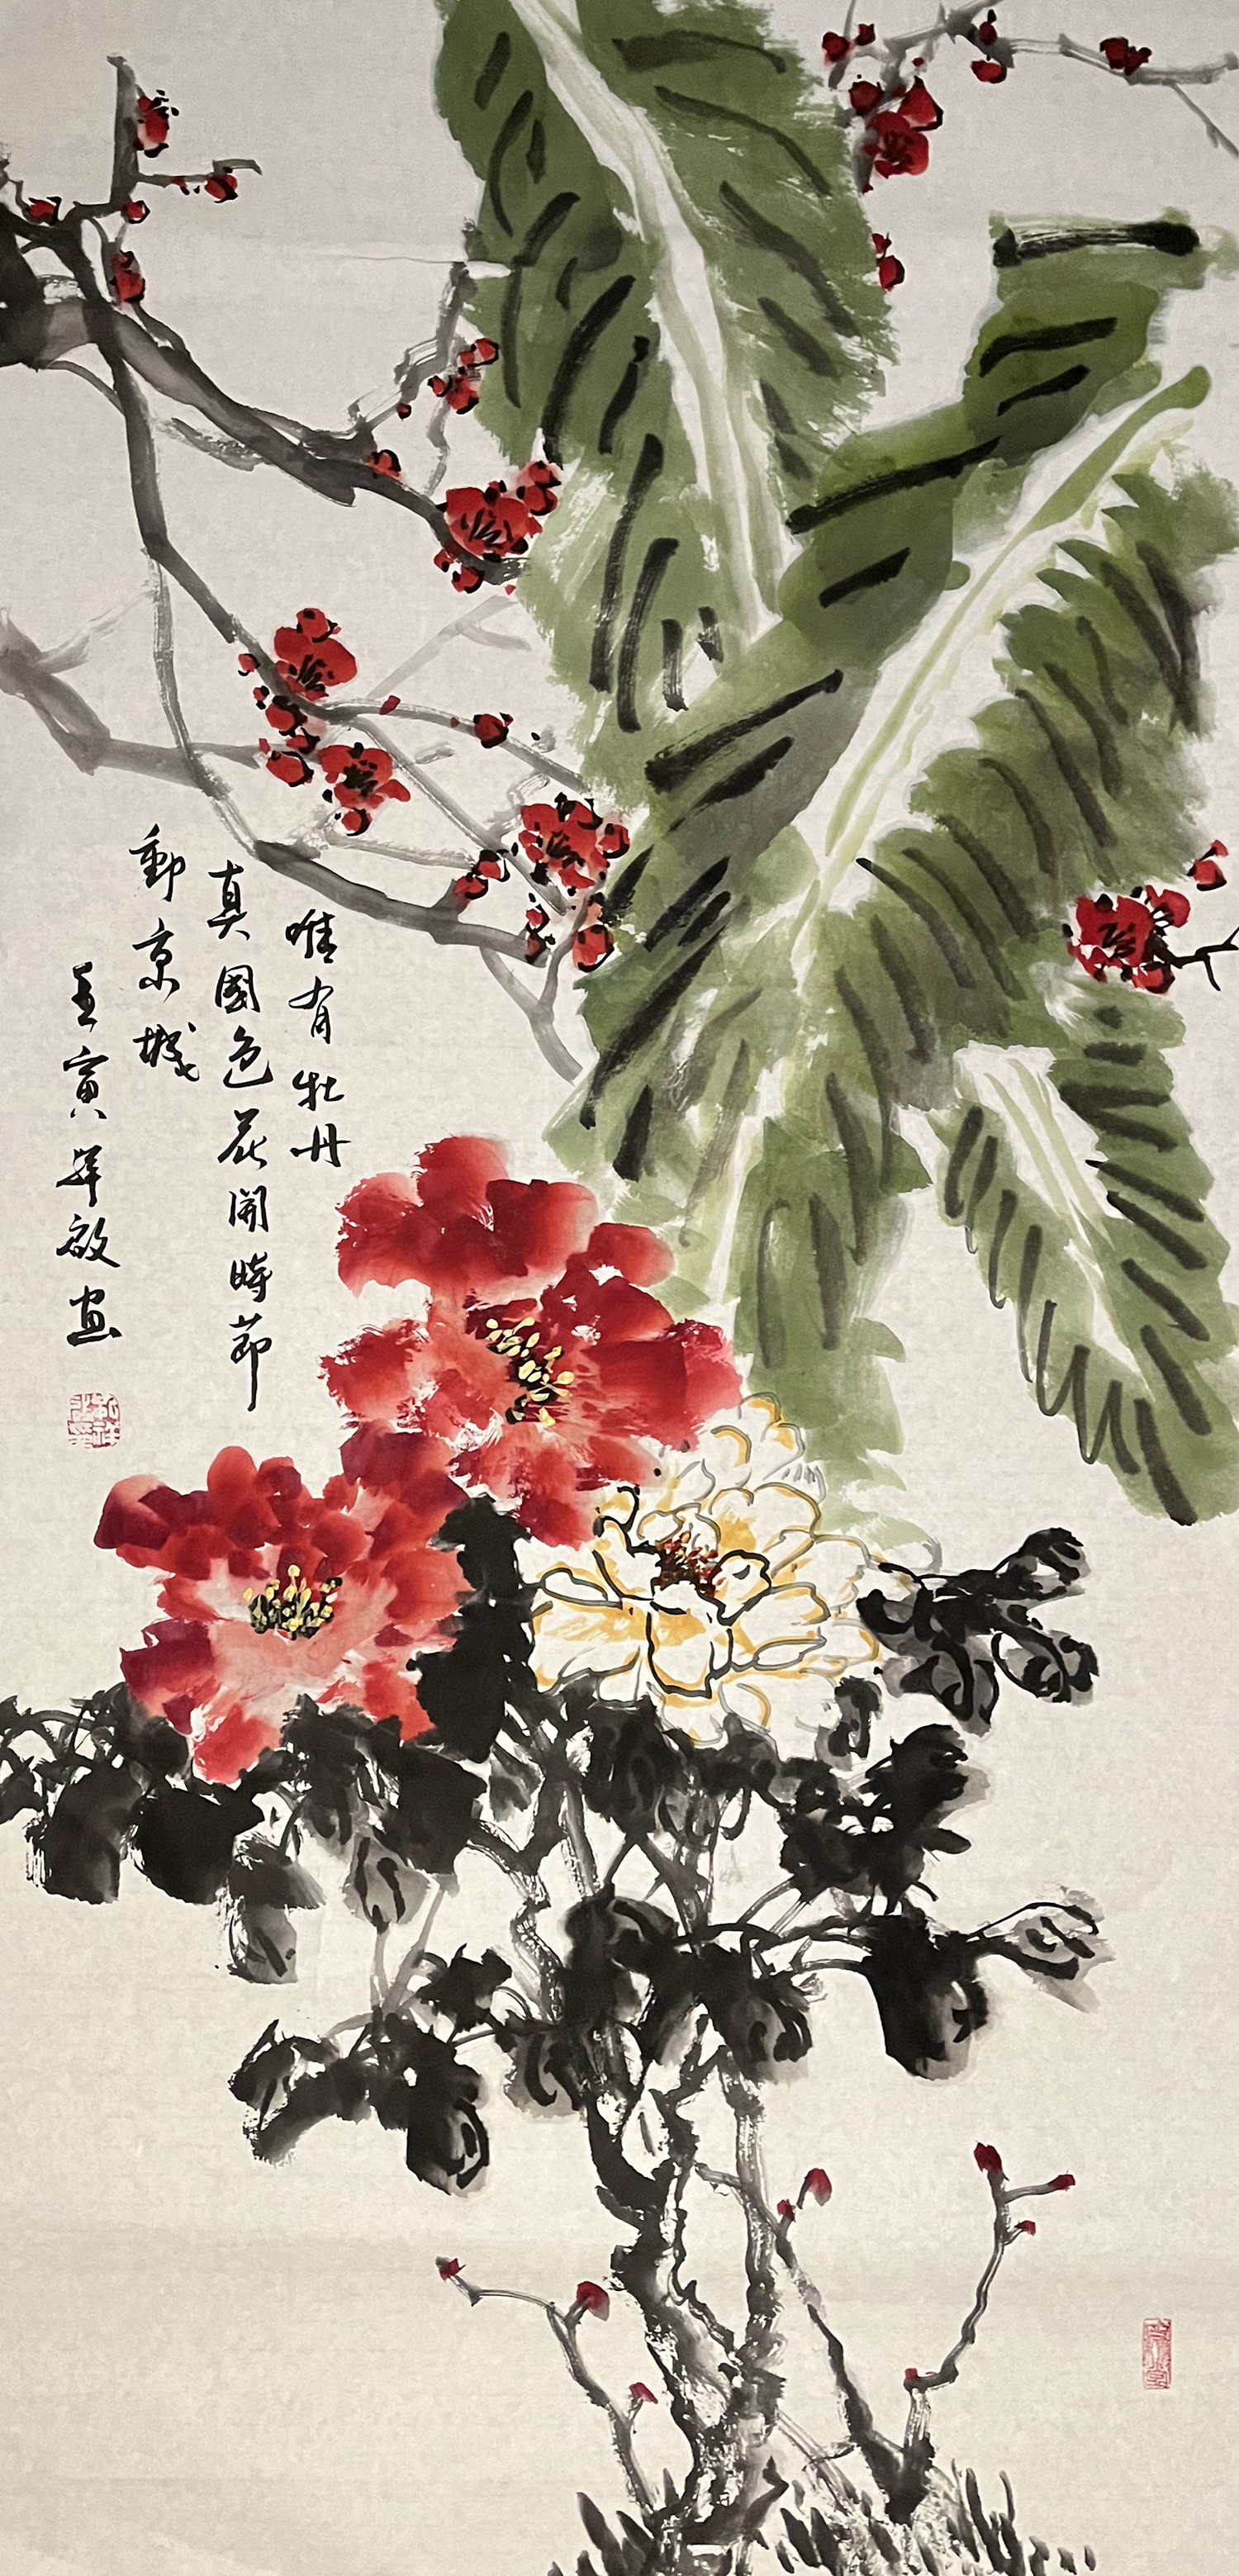 唯有牡丹
真國色花開時節
動京城
壬寅年啟畫